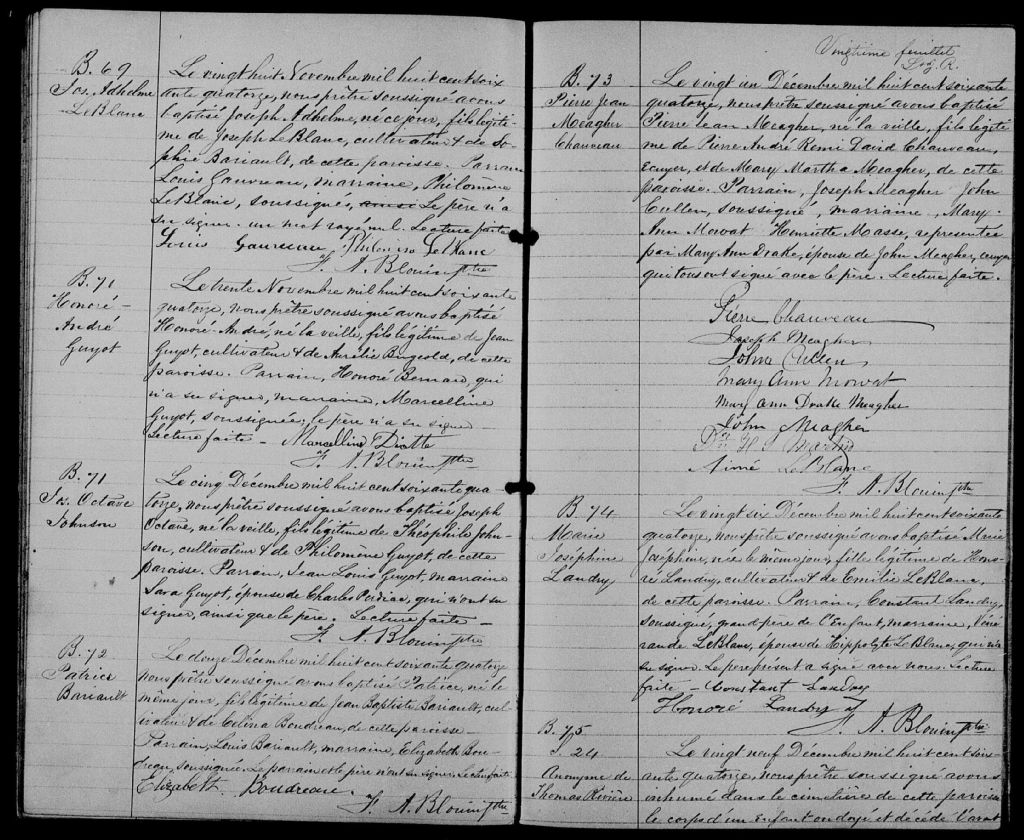 B. 69
Jos. Adhelme
LeBlanc
Le vingt huit Novembre mil huit cent soix
ante quatorze, nous prêtre soussigné avons
baptisé Joseph Adhelme, né ce jour, fils légiti-
me de Joseph LeBlanc, cultivateur & de So-
phie Bariault, de cette paroisse. Parrain
Louis Gauvreau, marraine, Philomene
LeBlanc, soussignés, ainsi Le père n'a
su signer. un mot rayé nul. Lecture faite
Louis Gauvreau Philomène LeBlanc
F. A. Blouin ptre
B. 71
Honoré-
André
Guyot
Le trente Novembre mil huit cent soixante
quatorze, nous prêtre soussigné avons baptisé
Honoré André, né la veille, fils légitime de Jean
Guyot, cultivateur & de Aurélie Bugeold, de cette
paroisse. Parrain, Honoré Bernard, qui
n'a su signer, marraine, Marcelline
Guyot, soussignée; le père n'a su signer
Lecture faite - Marcelline Diotte
F. A. Blouin ptre
B. 71
Jos. Octave
Johnson
Le cinq Décembre mil huit cent soixante qua-
torze, nous prêtre soussigné avons baptisé Joseph
Octave, né la veille, fils légitime de Théophile John-
son, cultivateur & de Philomène Guyot, de cette
paroisse. Parrain, Jean Louis Guyot, marraine
Sara Guyot, épouse de Charles qui n'ont su
signer, ainsi que le père. Lecture faite -
F. A. Blouin ptre
B. 72
Patrice
Bariault
Le douze Décembre mil huit cent soixante quatorze
nous prêtre soussigné avons baptisé Patrice, né le
même jour, fils légitime de Jean Baptiste Bariault, cul-
tivateur & de Célina Boudreau, de cette paroisse
Parrain, Louis Bariault, marraine, Elizabeth Bou-
dreau, soussignée. Le parain et le père n'ont su signer. Lecture faite
Elizabeth Boudreau
F. A. Blouin ptre
Vingtième feuillet
B. 73
Pierre Jean
Meagher
Chauveau
Le vingt un Décembre mil huit cent soixante
quatorze, nous prêtre soussigné avons baptisé
Pierre Jean Meagher, né la veille, fils légiti
me de Pierre André Remi David Chauveau,
Ecuyer, et de Mary Martha Meagher, de cette
paroisse. Parrain, Joseph Meagher John
Cullen, soussigné, marraine, Mary
Ann Mowat Henriette Masse, representée
par Mary Ann Drake, épouse de John Meagher, ecuyer
qui tous ont signé avec le père. Lecture faite.
Pierre Chauveau
Joseph Meagher
John Cullen
Mary Ann Mowat
Mary Ann Drake Meagher
John Meagher
Aimé LeBlanc
F. A. Blouin ptre
B. 74
Marie
Joséphine
Landry
Le vingt six Décembre mil huit cent soixante
quatorze, nous prêtre soussigné avons baptisé Marie
Joséphine, née le même jour, fille légitime de Hono-
ré Landry, cultivateur & de Emilie LeBlanc,
de cette paroisse. Parrain, Constant Landry,
soussigné, grand père de l'Enfant, marraine, Véné
rande LeBlanc, épouse de Hippolyte LeBlanc, qui n'a
su signer. Le père present a signé avec nous. Lecture
faite - Constant Landry
Honoré Landry
F. A. Blouin ptre
B. 75
S. 24
Anonyme de
Thomas Rivière
Le vingt neuf Décembre mil huit cent soix-
ante quatorze, nous prêtre soussigné avons
inhumé dans le cimetière de cette paroisse
le corps d'un Enfant ondoyé et décédé